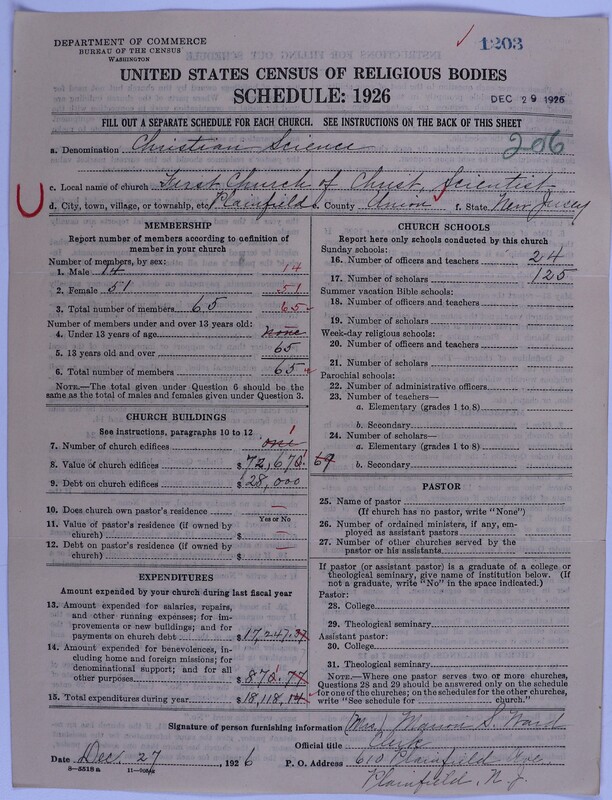 DEPARTMENT OF COMMERCE
BUREAU OF THE CENSUS
WASHINGTON
1203
UNITED STATES CENSUS OF RELIGIOUS BODIES
SCHEDULE: 1926
DEC 29 1926
FILL OUT A SEPARATE SCHEDULE FOR EACH CHURCH. SEE INSTRUCTIONS ON THE BACK OF THIS SHEET
a. Denomination Christian Science
206
c. Local name of church First Church of Christ, Scientist,
d. City, town, village, or township, etc. Plainfield e. County Union f. State New Jersey
MEMBERSHIP
Report number of members according to definition of
member in your church
Number of members, by sex:
1. Male 14 14
2. Female 51 51
3. Total number of members 65 65
Number of members under and over 13 years old:
4. Under 13 years of age none
5. 13 years old and over 65
6. Total number of members 65
NOTE.—The total given under Question 6 should be
the same as the total of males and females given under Question 3.
CHURCH BUILDINGS
See instructions, paragraphs 10 to 12
7. Number of church edifices one 1
8. Value of church edifices $72,670. 67
9. Debt on church edifices $28,000
10. Does church own pastor's residence
Yes or No
11. Value of pastor's residence (if owned by
church) $
12. Debt on pastor's residence (if owned by
church) $
EXPENDITURES
Amount expended by your church during last fiscal year
13. Amount expended for salaries, repairs,
and other running expenses; for im-
provements or new buildings; and for
payments on church debt $17,247.37
14. Amount expended for benevolences,
including home and foreign missions; for
denominational support; and for all
other purposes $870.77
15. Total expenditures during year $18,118.14
CHURCH SCHOOLS
Report here only schools conducted by this church
Sunday schools:
16. Number of officers and teachers 24
17. Number of scholars 125
Summer vacation Bible schools:
18. Number of officers and teachers
19. Number of scholars
Week-day religious schools:
20. Number of officers and teachers
21. Number of scholars
Parochial schools:
22. Number of administrative officers
23. Number of teachers—
a. Elementary (grades 1 to 8)
b. Secondary
24. Number of scholars—
a. Elementary (grades 1 to 8)
b. Secondary
PASTOR
25. Name of pastor
(If church has no pastor, write "None")
26. Number of ordained ministers, if any, em-
ployed as assistant pastors
27. Number of other churches served by the
pastor or his assistants
If pastor (or assistant pastor) is a graduate of a college or
theological seminary, give name of institution below. (If
not a graduate, write "No" in the space indicated.)
Pastor:
28. College
29. Theological seminary
Assistant pastor:
30. College
31. Theological seminary
NOTE.—Where one pastor serves two or more churches,
Questions 28 and 29 should be answered only on the schedule
for one of the churches; on the schedules for the other churches,
write "See schedule for church."
Signature of person furnishing information (Mrs.) Marion S. Ward
Official title Clerk
Date Dec. 27, 1926 P. O. Address 610 Plainfield Ave.
8—5518a
Plainfield, N. J.